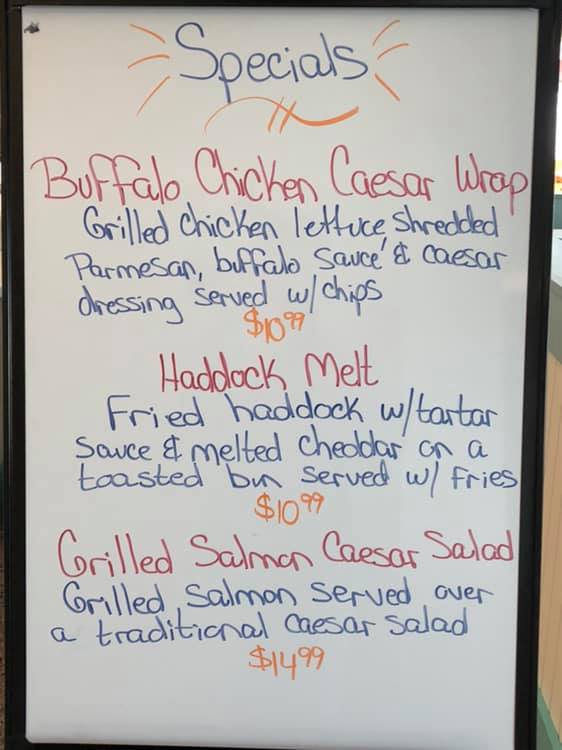 Specials
Buffalo Chicken Caesar Wrap
Grilled chicken lettuce, shredded
Parmesan, buffalo sauce & caesar
dressing served w/chips
$10.99
Haddock Melt
Fried haddock w/tartar
sauce & melted cheddar on a
toasted bun served w/ fries
$10.99
Grilled Salmon Caesar Salad
Grilled salmon served over
a traditional caesar salad
$14.99